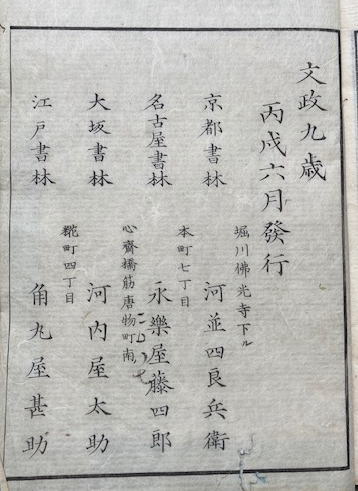 文政九歳
丙戌六月發行
堀川佛光寺下ル
京都書林 河並四良兵衛
本町七丁目
名古屋書林 永樂屋藤四郎
心齋橋筋唐物町南
大坂書林 河内屋太助
糀町四丁目
江戸書林 角丸屋甚助